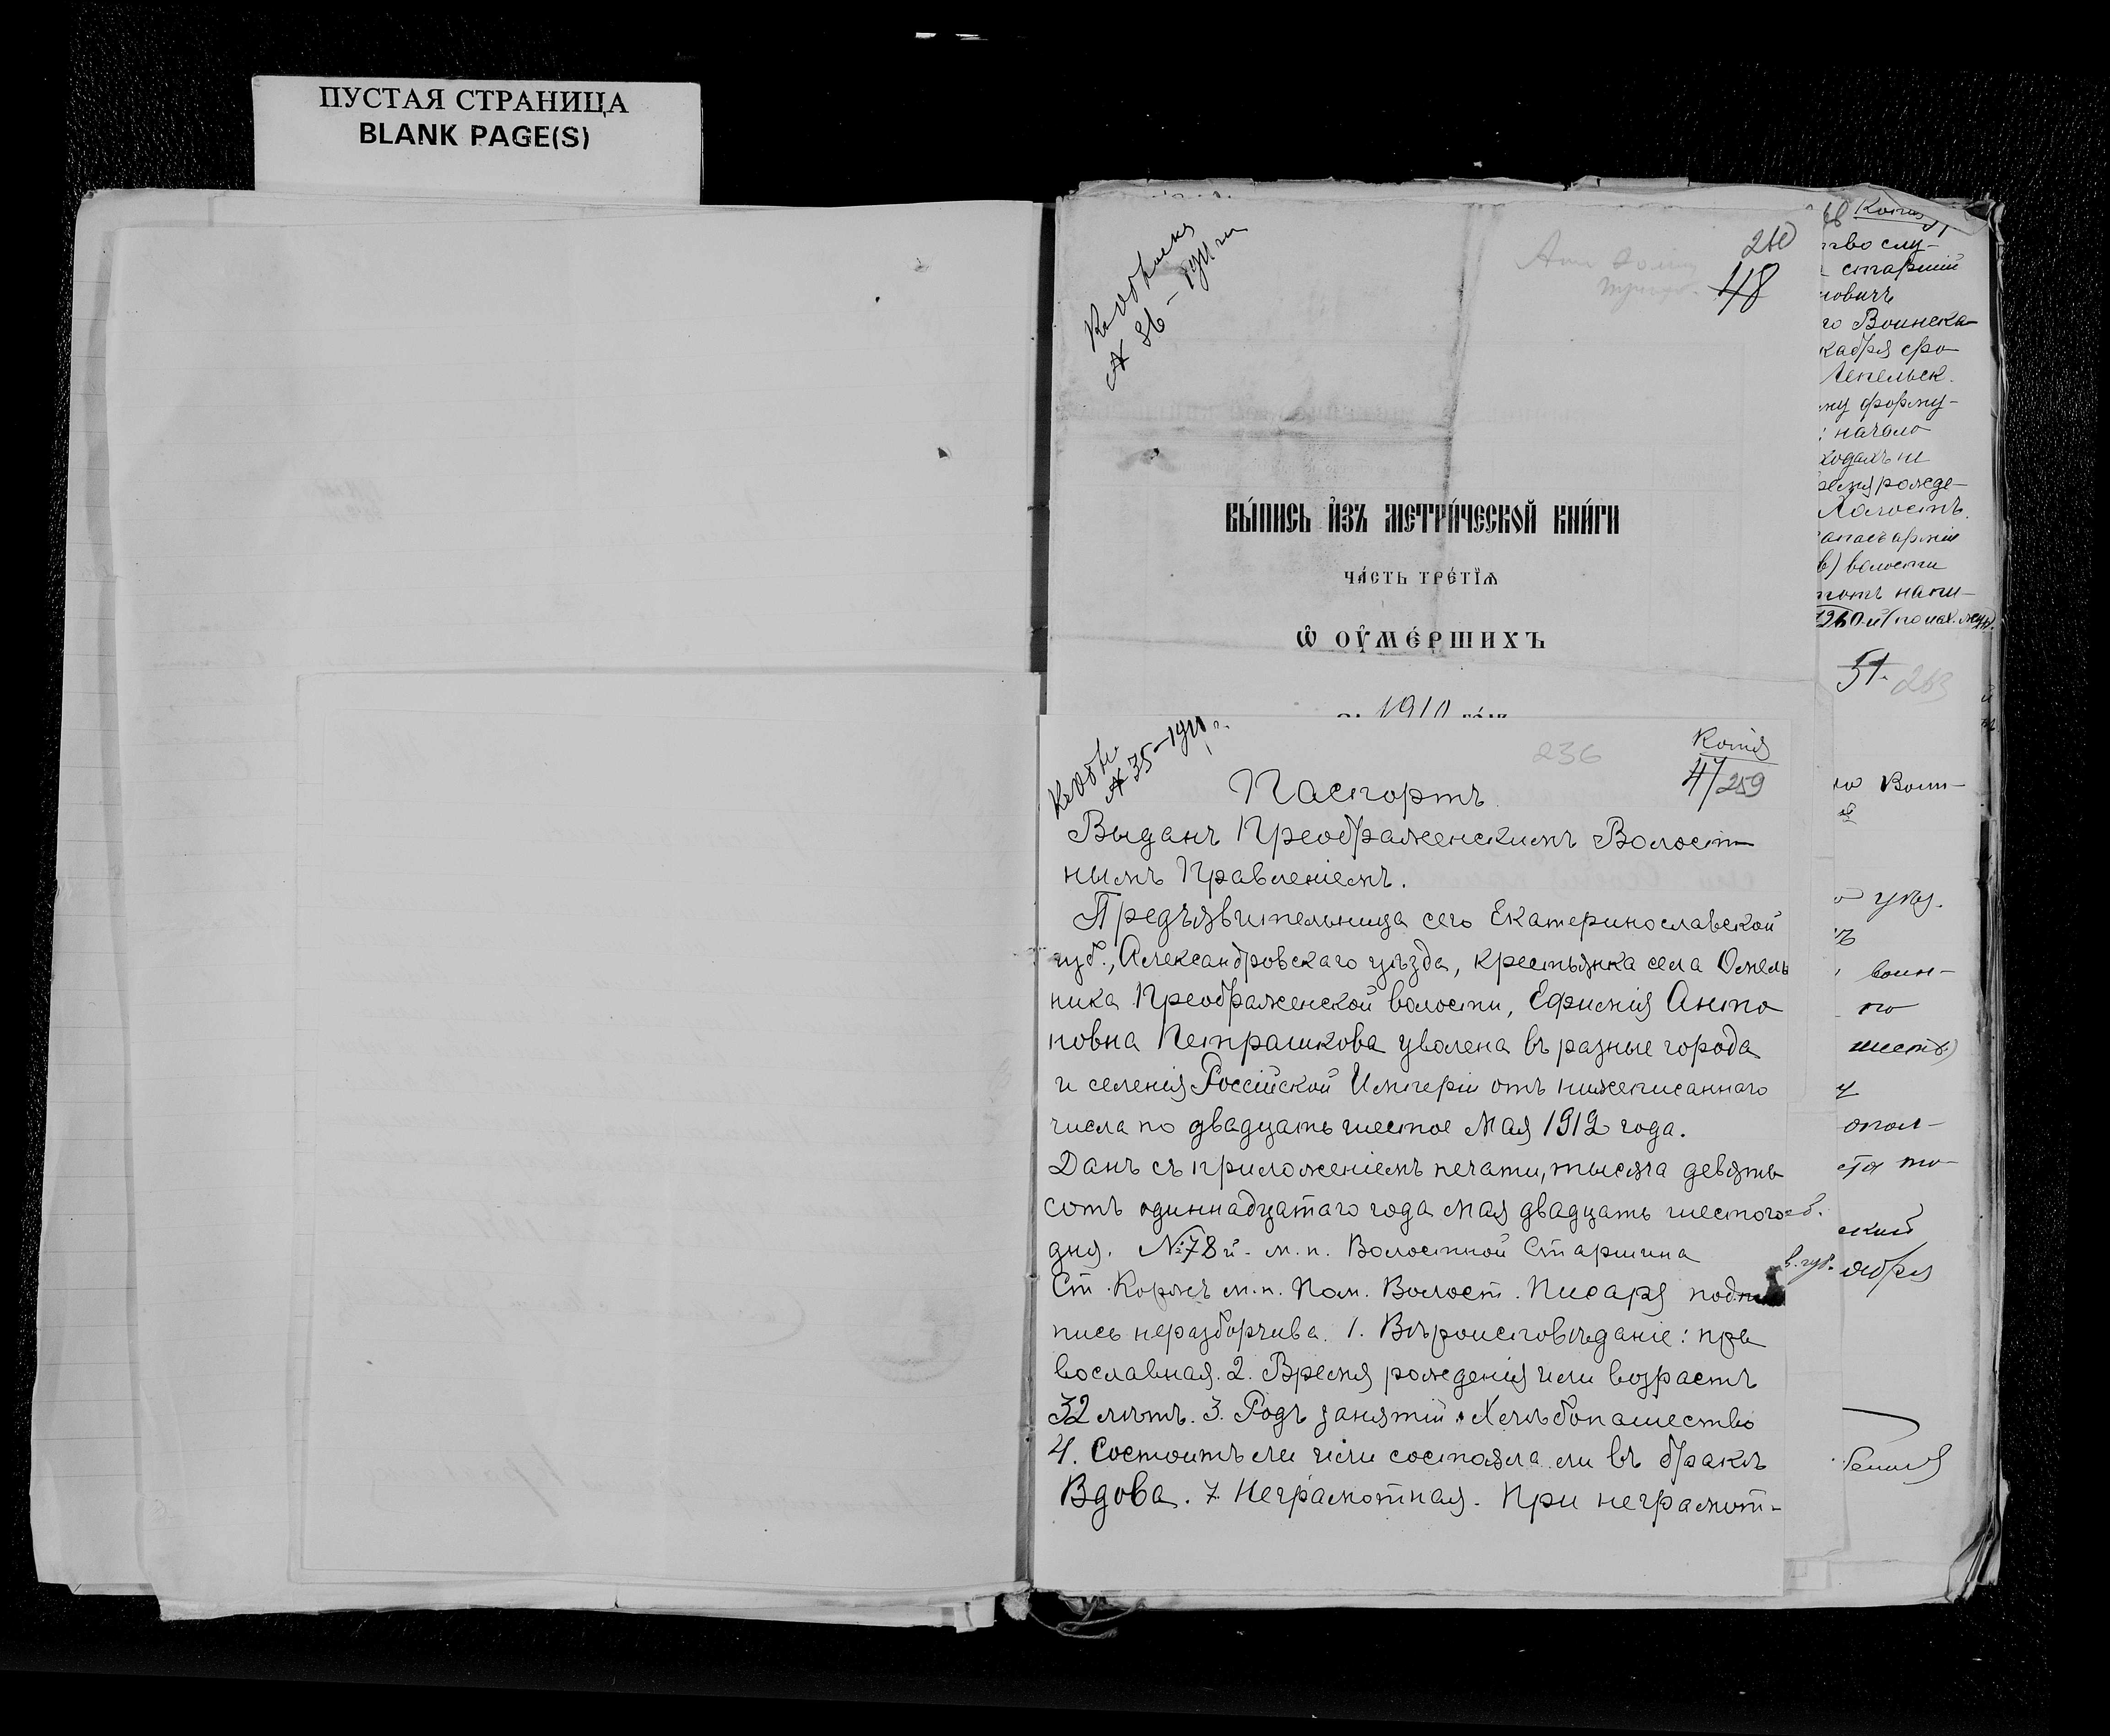 ПУСТАЯ СТРАНИЦА
BLANK PAGE(S)
№ 36 –
260
48
ВЫ́ПИСЬ И҆ЗЪ МЕТРИ́ЧЕСКОЙ КНИ́ГИ
ЧА́СТЬ ТРЕ́ТЇѦ
Ѡ҆ ОУ҆МЕ́РШИХЪ
1910
№ 35–1911 г.
236
Копія
47
259
Паспортъ
Выданъ Преображенскимъ Волост-
нымъ Правленіемъ.
Предъявительница сего Екатеринославской
губ., Александровскаго уѣзда, крестьянка села Омель
ника Преображенской волости, Ефимія Анто
новна Петрашкова уволена въ разные города
и селенія Россійской Имперіи отъ нижеписаннаго
числа по двадцать шестое Мая 1912 года.
Данъ съ приложеніемъ печати, тысяча девять
сотъ одиннадцатаго года мая двадцать шестого
дня. №78й. м.п. Волостной Старшина
Ст. Коржъ м.п. Пом. Волост. Писаря под
пись неразборчива. 1. Вѣроисповѣданіе: пра
вославная. 2. Время рожденія или возрастъ
32 лѣтъ. 3. Родъ занятій. Хлѣбопашество
4. Состоитъ ли или состояла ли въ бракѣ
Вдова. 7. Неграмотная. При неграмот-
Копія
старшій
новичъ
го Воинска-
кабря сро
Лепельск.
ему форму-
: начало
ходахъ и
время рожде-
Волость.
в) волости
51.
263
воин-
шесть)
опол-
скій
ября